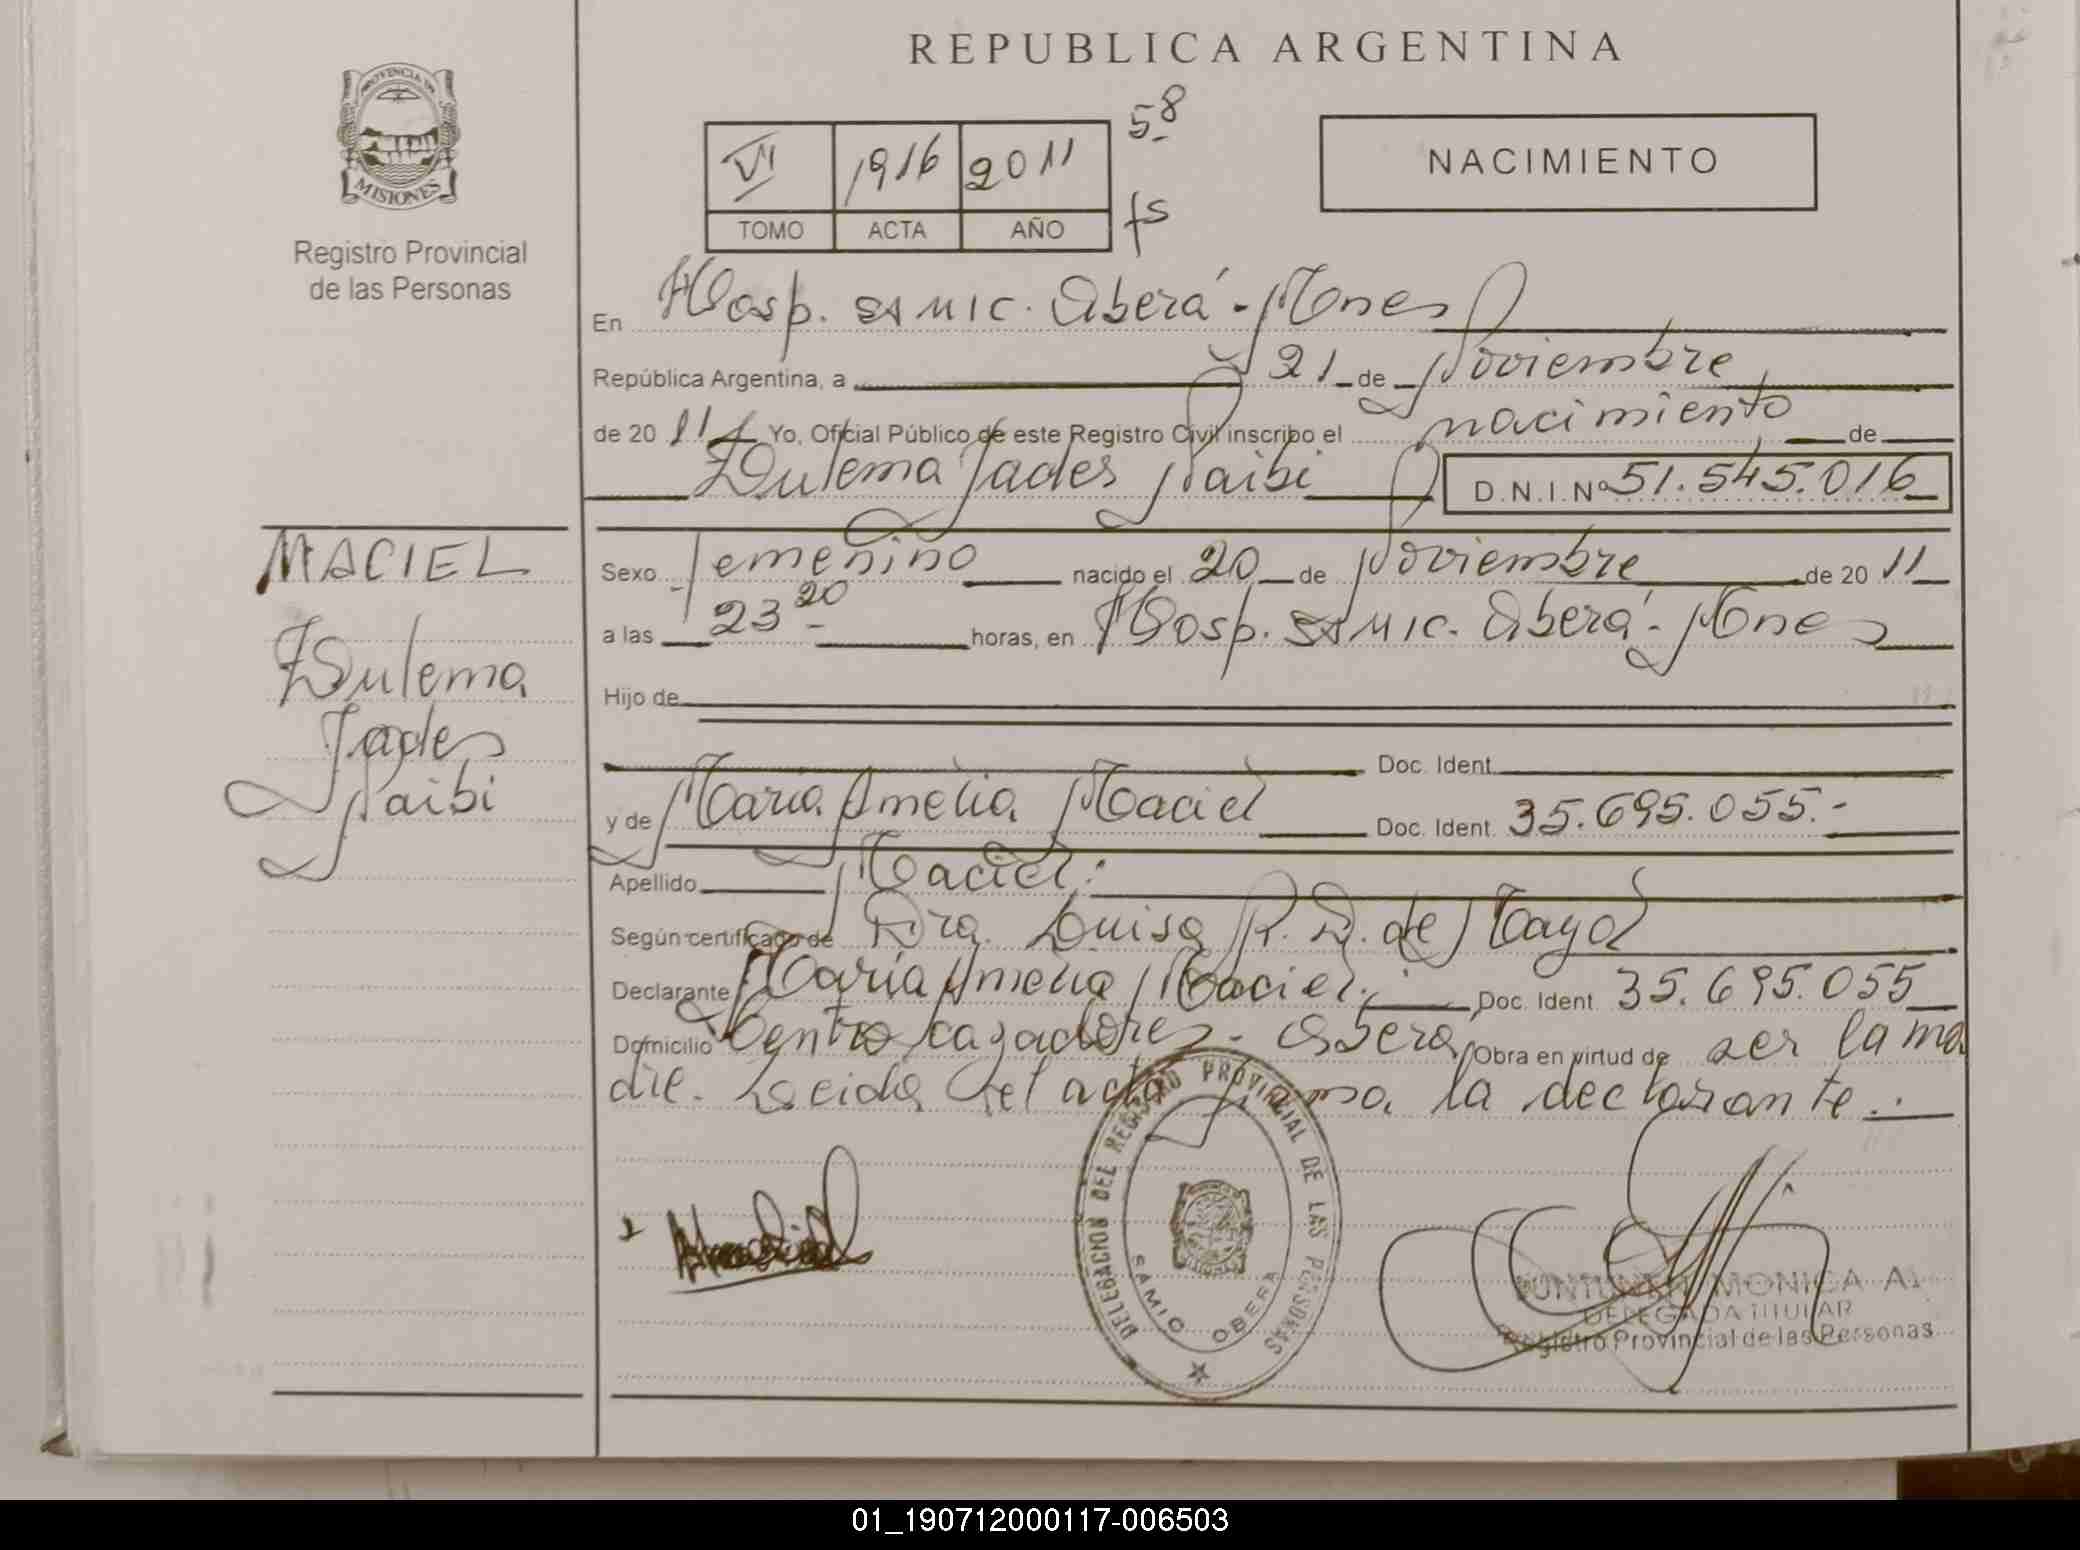 REPUBLICA ARGENTINA
PROVINCIA DE
MISIONES
Registro Provincial
de las Personas
VI 1916 2011
TOMO ACTA AÑO
58
fs
NACIMIENTO
En Hosp. SAMIC. Oberá - Mnes
República Argentina, a 21 de Noviembre
de 20 11 Yo, Oficial Público de este Registro Civil inscribo el nacimiento de
Zulema Jades Naibi D.N.I.Nº 51.545.016
MACIEL
Zulema
Jades
Naibi
Sexo Femenino nacido el 20 de Noviembre de 20 11
a las 23 20 horas, en Hosp. SAMIC. Oberá - Mnes
Hijo de
Doc. Ident.
y de María Amelia Maciel Doc. Ident. 35.695.055.-
Apellido Maciel.
Según certificado de Dra. Luisa R. D. de Mayol
Declarante María Amelia Maciel. Doc. Ident. 35.695.055
Domicilio Centro Cazadores - Oberá Obra en virtud de ser la ma
dre. Leida el acta firma la declarante.
DELEGACION DEL REGISTRO PROVINCIAL DE LAS PERSONAS
SAMIC OBERA
MONICA A.
DELEGADA TITULAR
Registro Provincial de las Personas
01_190712000117-006503